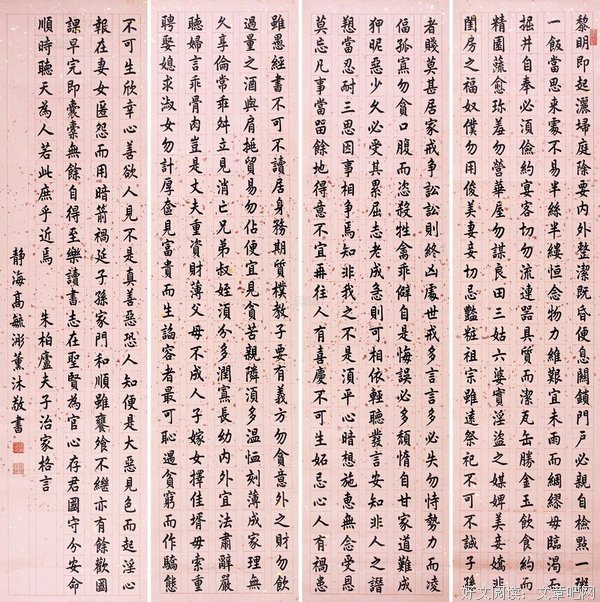 黎明即起灑埽庭除要內外整潔既昏便息關鎖門戶必親自檢點一粥
一飯當思來處不易半絲半縷恒念物力維艱宜未雨而綢繆毋臨渴而
掘井自奉必須儉約宴客切勿流連器具質而潔瓦缶勝金玉飲食約而
精園蔬愈珍羞勿營華屋勿謀良田三姑六婆實淫盜之媒婢美妾嬌非
閨房之福奴僕勿用俊美妻妾切忌豔粧祖宗雖遠祭祀不可不誠子孫
者賤莫甚居家戒爭訟訟則終凶處世戒多言言多必失勿恃勢力而凌
偪孤寡勿貪口腹而恣殺牲禽乖僻自是悔誤必多頹惰自甘家道難成
狎昵惡少久必受其累屈志老成急則可相依輕聽發言安知非人之譖
愬當忍耐三思因事相爭焉知非我之不是須平心暗想施惠無念受恩
莫忘凡事當留餘地得意不宜再往人有喜慶不可生妒忌心人有禍患
雖愚經書不可不讀居身務期質樸教子要有義方勿貪意外之財勿飲
過量之酒與肩挑貿易勿佔便宜見貧苦親隣須多溫恤刻薄成家理無
久享倫常乖舛立見消亡兄弟叔姪須分多潤寡長幼內外宜法肅辭嚴
聽婦言乖骨肉豈是丈夫重資財薄父母不成人子嫁女擇佳壻毋索重
聘娶媳求淑女勿計厚奩見富貴而生諂容者最可恥遇貧窮而作驕態
不可生欣幸心善欲人見不是真善惡恐人知便是大惡見色而起淫心
報在妻女匿怨而用暗箭禍延子孫家門和順雖饔飧不繼亦有餘歡國
課早完即囊橐無餘自得至樂讀書志在聖賢為官心存君國守分安命
順時聽天為人若此庶乎近焉 朱柏廬夫子治家格言
靜海高毓浵薰沐敬書
好文阅读: 文章吧网